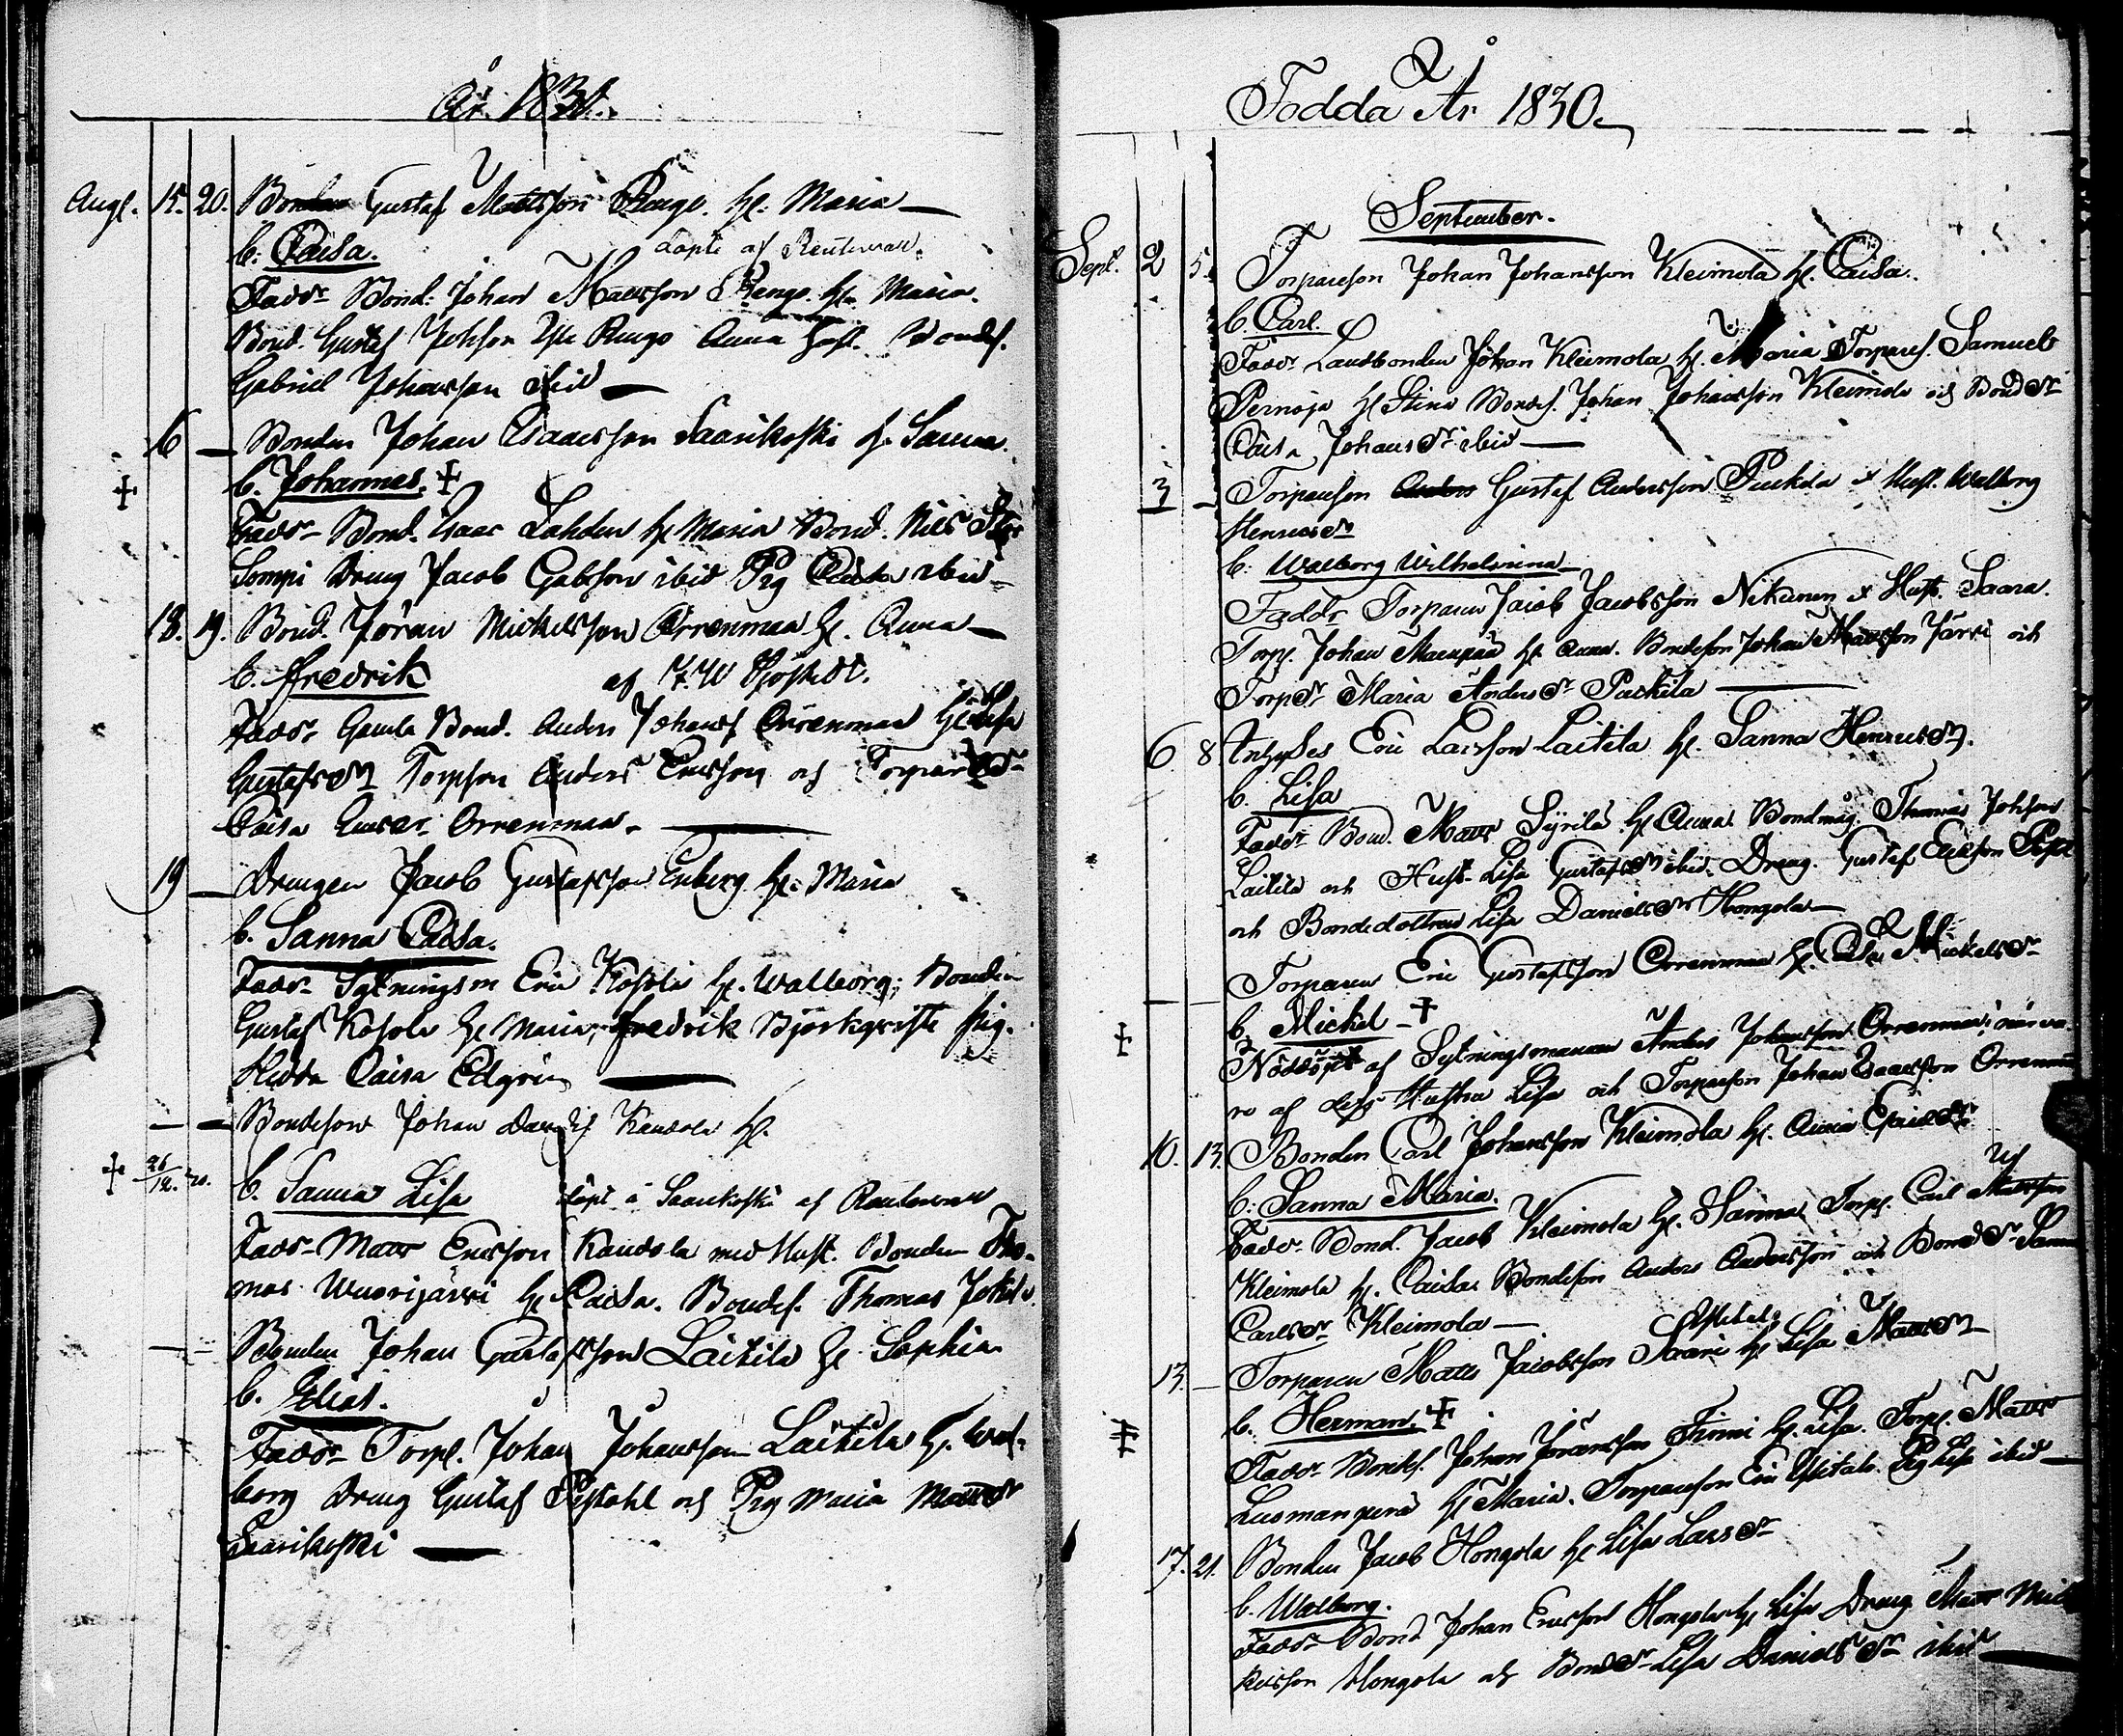 År 1830.
Augl. 15. 20. Bonden Gustaf Mattsson Rengo. H: Maria —
b: Caisa. döpte af Rentewall.
Faddr Bond: Johan Mattsson Rengo. H: Maria.
Bond. Gustaf Johsson Rengo Anna Hust. Bondes.
Gabriel Johansson ibid —
16 — Bonden Johan Isaacsson Saarikoski H. Sanna.
b. Johannes. +
Faddr Bond. Isaac Lahden H Maria Bond. Nils
Sompi Dreng Jacob Gabsson ibid Pig Caisa ibid
18. 19. Bond. Jöran Mickelsson Orrenmaa H. Anna —
b. Fredrik af
Faddr Gamla Bond. Anders Johanss Orrenmaa H: Lisa
Gustafsdr Torpson Anders Ericsson och Torpardr
Caisa Orrenmaa. —
19 — Drengen Jacob Gustafsson Enberg H: Maria
b. Sanna Caisa.
Faddr Sytningsm Eric Kosola H. Walborg; Bonden
Gustaf Kosola H Maria, Fredrik Björkqvist Pig.
Hedda Caisa Edgrén —
— — Bondeson Johan Kandola H.
+ 26/12. 20. b. Sanna Lisa döpt i Saarikoski af
Faddr Matts Ericsson Kandola med Hust. Bonden Tho-
mas Wuorijärvi H Caisa. Bondes. Thomas
— — Bonden Johan Gustafsson Laitila H Sophia
b. Elias.
Faddr Torps. Johan Johansson Laitila H. Wal-
borg Dreng Gustaf och Pig Maria Mattsdr
Saarikoski —
Födda År 1830.
September.
Sept. 2 5. Torpareson Johan Johansson Kleimola H. Caisa.
b. Carl.
Faddr Landbonden Johan Kleimola H. Maria Torpares. Samuel
Pernaja H Stina Bondes. Johan Johansson Kleimola och Bonddr
Caisa Johansdr ibid —
3 — Torpareson Anders Gustaf Andersson Puckila & Hust. Walborg
Henricsdr
b: Walborg Wilhelmina
Faddr Torparen Jacob Jacobsson Nikunen & Hust. Saara.
Torps. Johan Maenpää H Anna. Bondeson Johan Mattsson Järvi och
Torpdr Maria Andersdr Puckila —
6 8 Inhyses Eric Larsson Laitila H. Sanna Henricsdr.
b. Lisa
Faddr Bond. Matts Syrilä H Anna Bondmåg Thomas Johsson
Laitila och Hust. Lisa Gustafsdr ibid. Dreng. Gustaf Ericson
och Bondedottren Lisa Danielsdr Hongola —
— — Torparen Eric Gustafsson Orrenmaa H. Caisa Mickelsdr
b. Mickel +
Nöddöpt af Sytningsmannen Anders Johansson Orrenmaa i närva-
ro af dess Hustru Lisa och Torpareson Johan Isaacsson Orrenmaa
10. 13. Bonden Carl Johansson Kleimola H. Anna Esaiedr
b: Sanna Maria.
Faddr Bond. Jacob Kleimola H. Sanna Torps. Carl Mattsson
Kleimola H. Caisa Bondeson Anders Andersson och Bonddr Sanna
Carlsdr Kleimola —
13. — Torparen Matts Jacobsson Saari H Lisa Mattsdr
b. Herman. +
Faddr Bondes. Johan Johansson Finni H. Lisa. Torps. Matts
Lusmanperä H Maria. Torpareson Eric Pig Lisa ibid —
17. 21. Bonden Jacob Hongola H Lisa Larsdr
b. Walborg.
Faddr Bond Johan Ericsson Hongola H Lisa Dreng Matts Mic-
kelsson Hongola och Bonddr Lisa Danielsdr ibid —